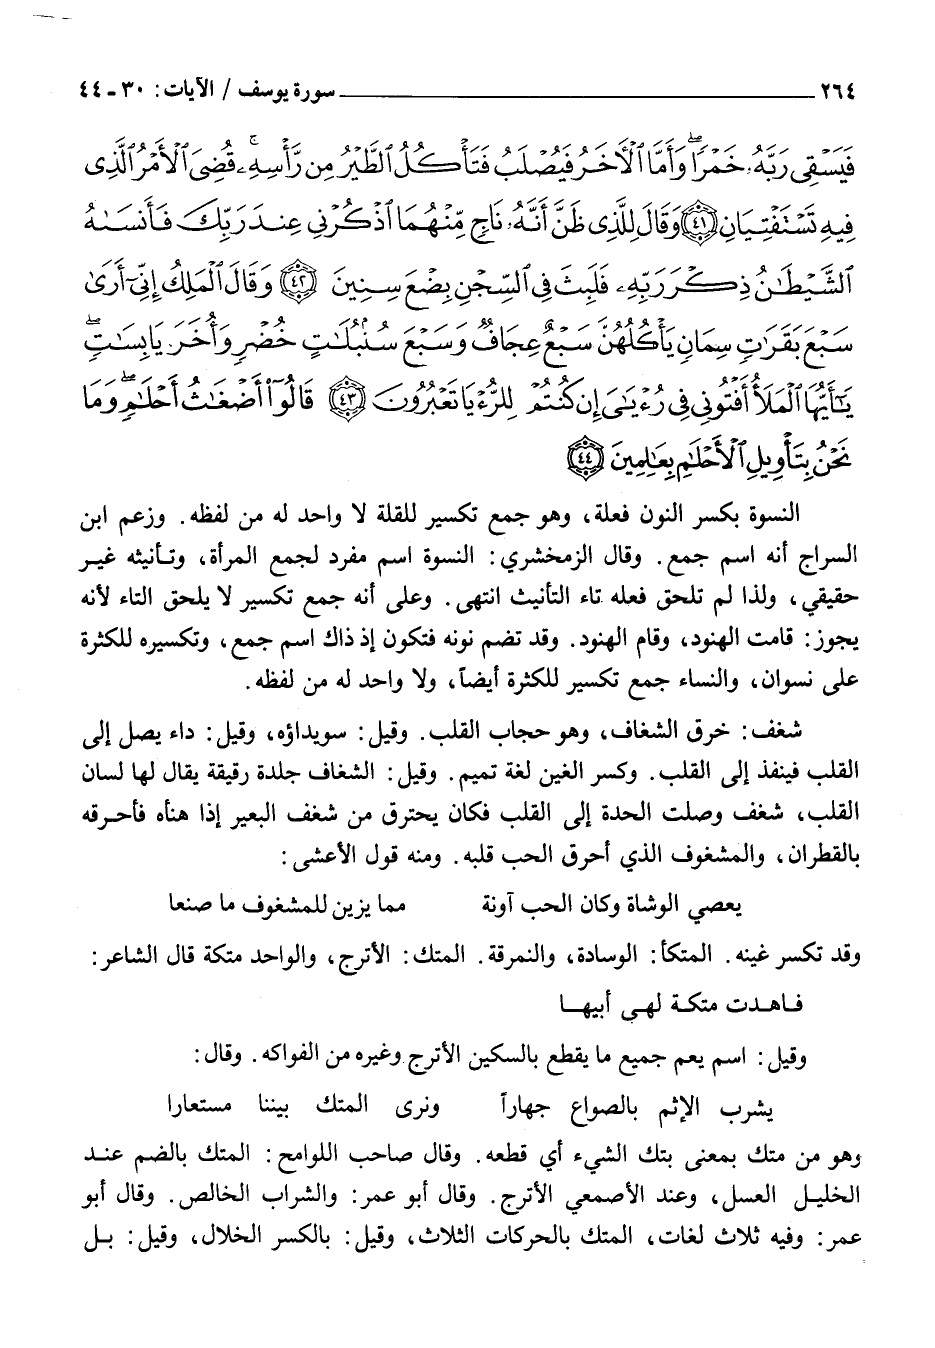 ٢٦٤ ــــــــــــــــــــ سورة يوسف / الآيات: ٣٠ ـ ٤٤
فَيَسْقِى رَبَّهُۥ خَمْرًاۖ وَأَمَّا ٱلْأَخَرُ فَيُصْلَبُ فَتَأْكُلُ ٱلطَّيْرُ مِن رَّأْسِهِۦۚ قُضِىَ ٱلْأَمْرُ ٱلَّذِى
فِيهِ تَسْتَفْتِيَانِ ﴿٤١﴾ وَقَالَ لِلَّذِى ظَنَّ أَنَّهُۥ نَاجٍ مِّنْهُمَا ٱذْكُرْنِى عِندَ رَبِّكَ فَأَنسَىٰهُ
ٱلشَّيْطَٰنُ ذِكْرَ رَبِّهِۦ فَلَبِثَ فِى ٱلسِّجْنِ بِضْعَ سِنِينَ ﴿٤٢﴾ وَقَالَ ٱلْمَلِكُ إِنِّىٓ أَرَىٰ
سَبْعَ بَقَرَٰتٍ سِمَانٍ يَأْكُلُهُنَّ سَبْعٌ عِجَافٌ وَسَبْعَ سُنۢبُلَٰتٍ خُضْرٍ وَأُخَرَ يَابِسَٰتٍۖ
يَٰٓأَيُّهَا ٱلْمَلَأُ أَفْتُونِى فِى رُءْيَٰىَ إِن كُنتُمْ لِلرُّءْيَا تَعْبُرُونَ ﴿٤٣﴾ قَالُوٓا۟ أَضْغَٰثُ أَحْلَٰمٍۖ وَمَا
نَحْنُ بِتَأْوِيلِ ٱلْأَحْلَٰمِ بِعَٰلِمِينَ ﴿٤٤﴾
النسوة بكسر النون فعلة، وهو جمع تكسير للقلة لا واحد له من لفظه. وزعم ابن
السراج أنه اسم جمع. وقال الزمخشري: النسوة اسم مفرد لجمع المرأة، وتأنيثه غير
حقيقي، ولذا لم تلحق فعله تاء التأنيث انتهى. وعلى أنه جمع تكسير لا يلحق التاء لأنه
يجوز: قامت الهنود، وقام الهنود. وقد تضم نونه فتكون إذ ذاك اسم جمع، وتكسيره للكثرة
على نسوان، والنساء جمع تكسير للكثرة أيضاً، ولا واحد له من لفظه.
شغف: خرق الشغاف، وهو حجاب القلب. وقيل: سويداؤه، وقيل: داء يصل إلى
القلب فينفذ إلى القلب. وكسر الغين لغة تميم. وقيل: الشغاف جلدة رقيقة يقال لها لسان
القلب، شغف وصلت الحدة إلى القلب فكان يحترق من شغف البعير إذا هنأه فأحرقه
بالقطران، والمشغوف الذي أحرق الحب قلبه. ومنه قول الأعشى:
يعصي الوشاة وكان الحب آونة مما يزين للمشغوف ما صنعا
وقد تكسر غينه. المتكأ: الوسادة، والنمرقة. المتك: الأترج، والواحد متكة قال الشاعر:
فاهدت متكة لهى أبيها
وقيل: اسم يعم جميع ما يقطع بالسكين الأترج وغيره من الفواكه. وقال:
يشرب الإثم بالصواع جهاراً ونرى المتك بيننا مستعارا
وهو من متك بمعنى بتك الشيء أي قطعه. وقال صاحب اللوامح: المتك بالضم عند
الخليل العسل، وعند الأصمعي الأترج. وقال أبو عمر: والشراب الخالص. وقال أبو
عمر: وفيه ثلاث لغات، المتك بالحركات الثلاث، وقيل: بالكسر الخلال، وقيل: بل